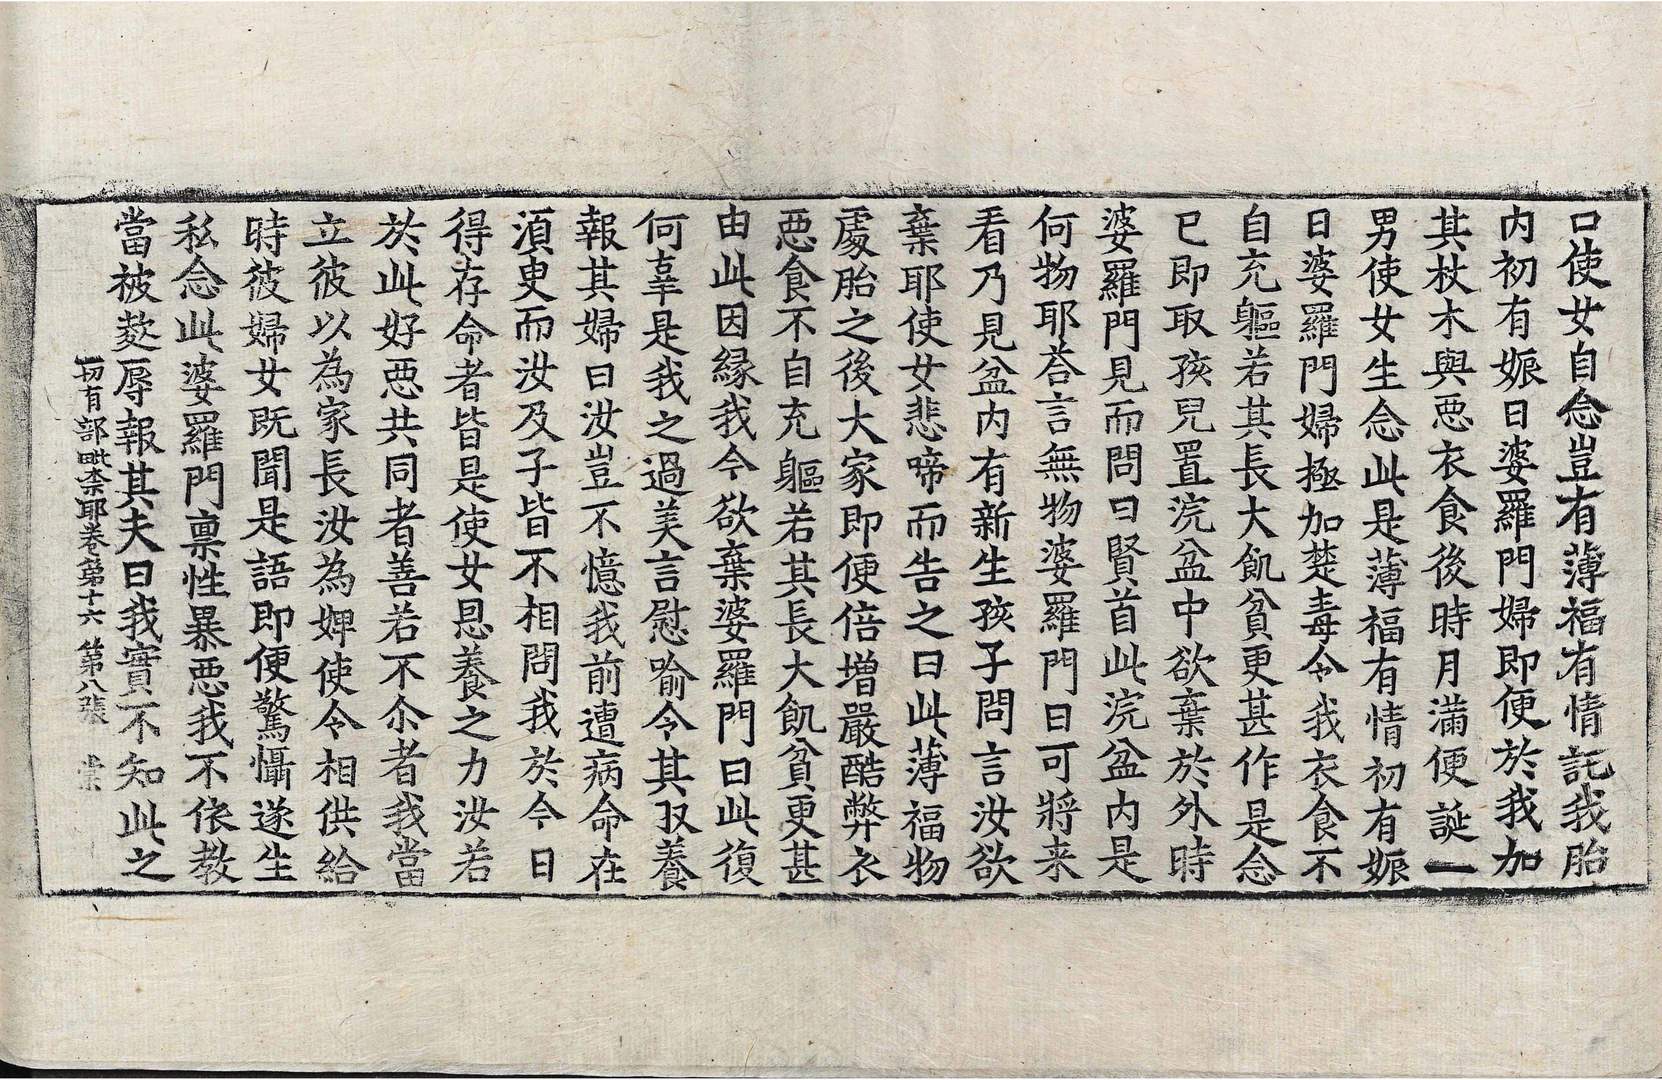 口使女自念豈有薄福有情託我胎
内初有娠日婆羅門婦即便於我加
其杖木與惡衣食後時月滿便誕一
男使女生念此是薄福有情初有娠
日婆羅門婦極加楚毒令我衣食不
自充軀若其長大飢貧更甚作是念
已即取孩兒置浣盆中欲棄於外時
婆羅門見而問曰賢首此浣盆内是
何物耶荅言無物婆羅門曰可將来
看乃見盆内有新生孩子問言汝欲
棄耶使女悲啼而告之曰此薄福物
處胎之後大家即便倍增嚴酷弊衣
惡食不自充軀若其長大飢貧更甚
由此因縁我今欲棄婆羅門曰此復
何辜是我之過美言慰喻令其収養
報其婦曰汝豈不憶我前遭病命在
須臾而汝及子皆不相問我於今日
得存命者皆是使女恩養之力汝若
於此好惡共同者善若不尒者我當
立彼以為家長汝為婢使令相供給
時彼婦女既聞是語即便驚懾遂生
私念此婆羅門禀性暴惡我不依教
當被欺辱報其夫曰我實不知此之
一切有部毗柰耶卷第十六 第八張 棠